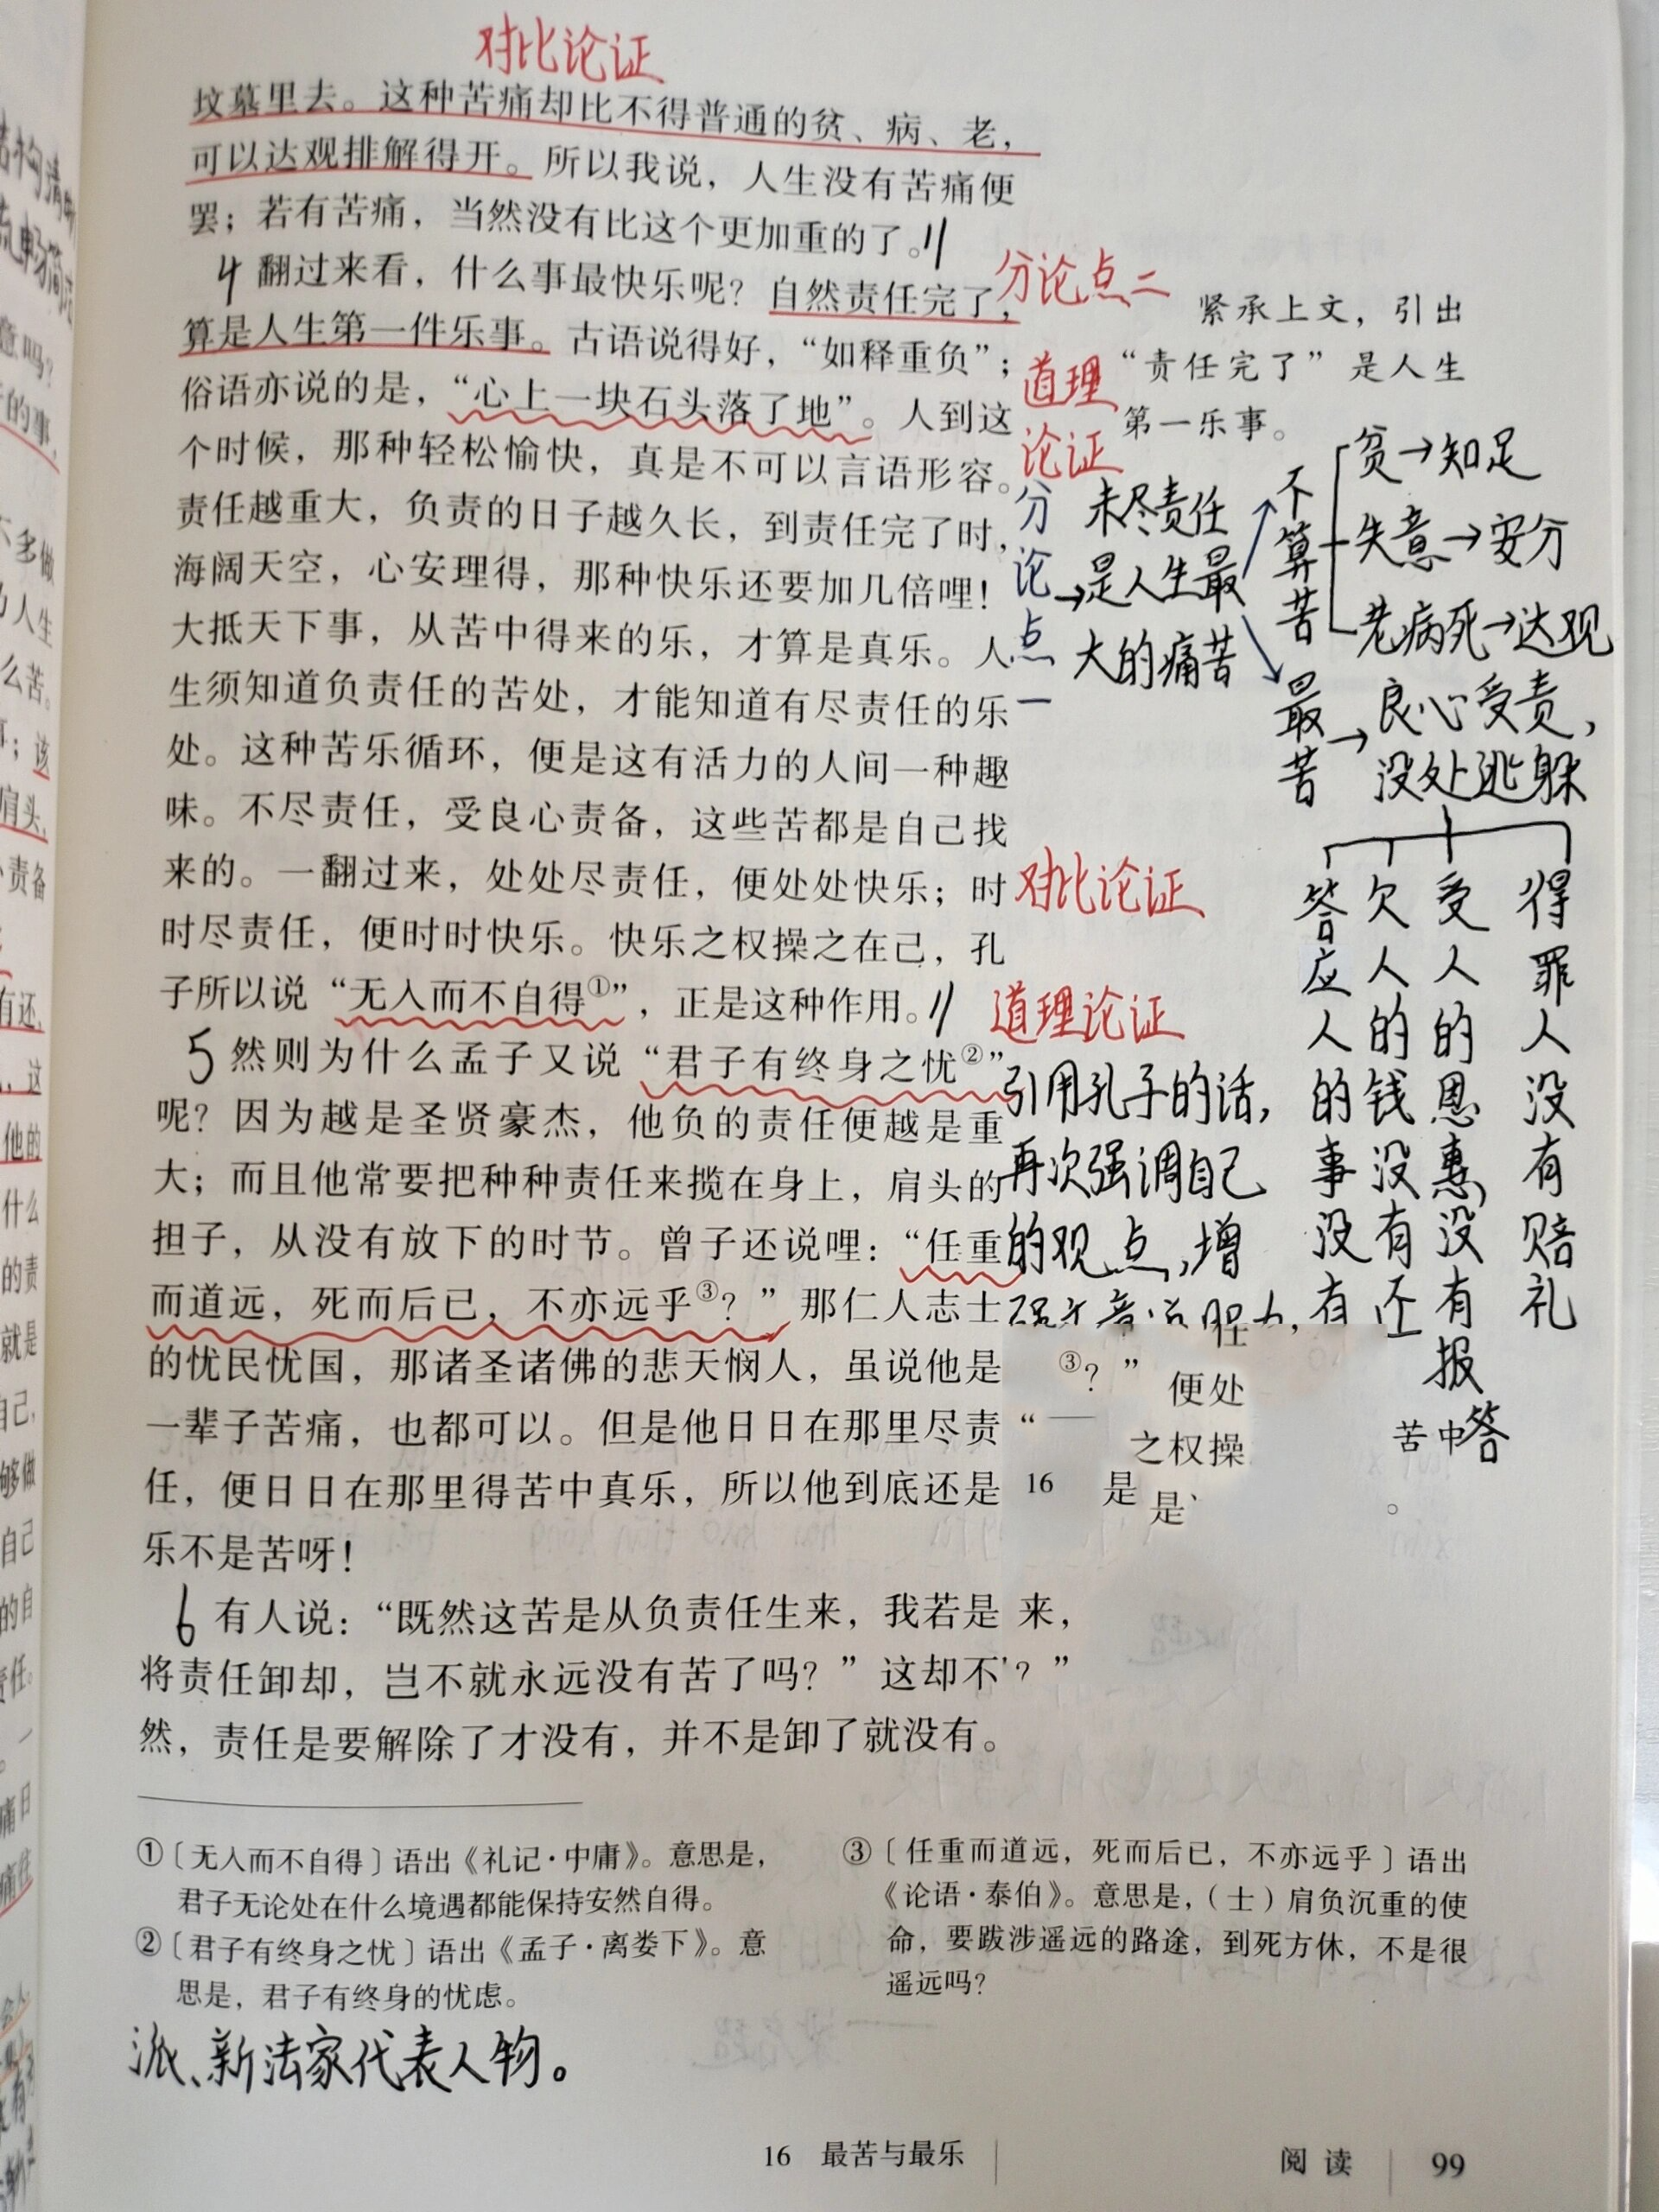 对比论证
坟墓里去。这种苦痛却比不得普通的贫、病、老，
可以达观排解得开。所以我说，人生没有苦痛便
罢；若有苦痛，当然没有比这个更加重的了。//
4 翻过来看，什么事最快乐呢？自然责任完了，
算是人生第一件乐事。古语说得好，“如释重负”；
俗语亦说的是，“心上一块石头落了地”。人到这
个时候，那种轻松愉快，真是不可以言语形容。
责任越重大，负责的日子越久长，到责任完了时，
海阔天空，心安理得，那种快乐还要加几倍哩！
大抵天下事，从苦中得来的乐，才算是真乐。人
生须知道负责任的苦处，才能知道有尽责任的乐
处。这种苦乐循环，便是这有活力的人间一种趣
味。不尽责任，受良心责备，这些苦都是自己找
来的。一翻过来，处处尽责任，便处处快乐；时
时尽责任，便时时快乐。快乐之权操之在己，孔
子所以说“无入而不自得①”，正是这种作用。//
5 然则为什么孟子又说“君子有终身之忧②”
呢？因为越是圣贤豪杰，他负的责任便越是重
大；而且他常要把种种责任来揽在身上，肩头的
担子，从没有放下的时节。曾子还说哩：“任重
而道远，死而后已，不亦远乎③？”那仁人志士
的忧民忧国，那诸圣诸佛的悲天悯人，虽说他是
一辈子苦痛，也都可以。但是他日日在那里尽责
任，便日日在那里得苦中真乐，所以他到底还是
乐不是苦呀！
6 有人说：“既然这苦是从负责任生来，我若是
将责任卸却，岂不就永远没有苦了吗？”这却不
然，责任是要解除了才没有，并不是卸了就没有。
分论点二
紧承上文，引出
“责任完了”是人生
第一乐事。
道理
论证
分论点一
→未尽责任
是人生最
大的痛苦
不算苦
贫→知足
失意→安分
老病死→达观
最苦→良心受责，
没处逃躲
答应人的事没有
欠人的钱没有还
受人的恩惠没有报答
得罪人没有赔礼
对比论证
道理论证
引用孔子的话，
再次强调自己
的观点，增
③？”
便处
“一
之权操
苦中
16
是
是
。
来，
？”
①〔无入而不自得〕语出《礼记·中庸》。意思是，
君子无论处在什么境遇都能保持安然自得。
②〔君子有终身之忧〕语出《孟子·离娄下》。意
思是，君子有终身的忧虑。
③〔任重而道远，死而后已，不亦远乎〕语出
《论语·泰伯》。意思是，（士）肩负沉重的使
命，要跋涉遥远的路途，到死方休，不是很
遥远吗？
派、新法家代表人物。
16 最苦与最乐
阅读 99